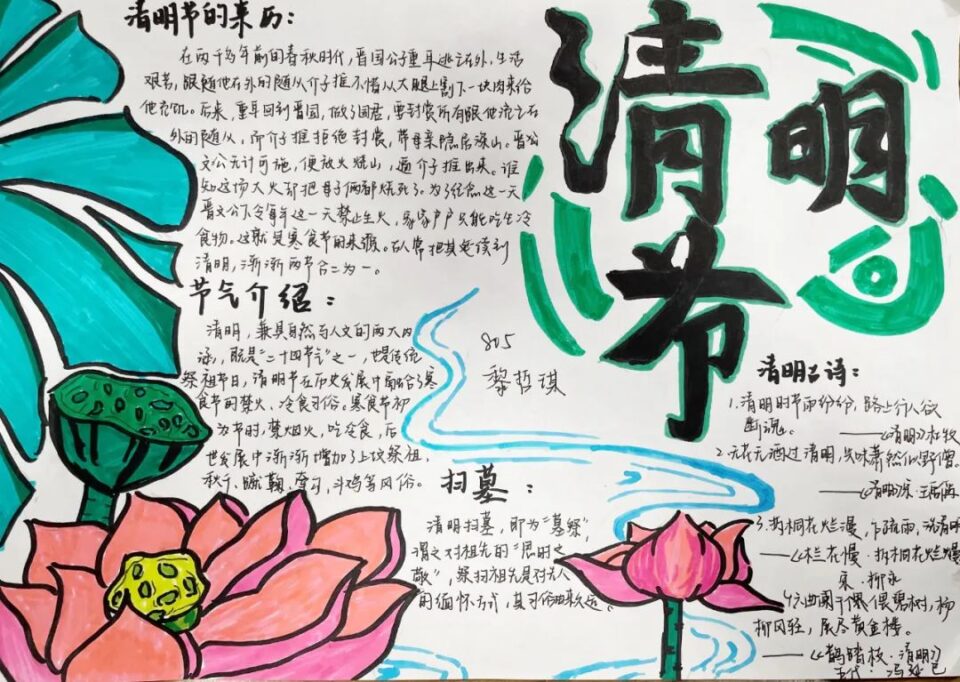 清明节的来历：
在两千多年前的春秋时代，晋国公子重耳逃亡在外，生活
艰苦，跟随他在外的随从介子推不惜从大腿上割下一块肉来给
他充饥。后来，重耳回到晋国，做了国君，要封赏所有跟他流亡在
外的随从，所介子推拒绝封赏，带母亲隐居深山。晋
文公无计可施，便放火烧山，逼介子推出来。谁
知这场大火却把母子俩都烧死了。为了纪念这一天
晋文公下令每年这一天禁止生火，家家户户只能吃生冷
食物。这就是寒食节的来源。人常把其延续到
清明，渐渐两节合二为一。
节气介绍：
清明，兼具自然与人文的两大内
涵，既是“二十四节气”之一，也是传统
祭祖节日，清明节在历史发展中融合了寒
食节的禁火、冷食习俗。寒食节初
为节时，禁烟火，吃冷食，后
世发展中渐渐增加了上坟祭祖，
秋千、蹴鞠、斗鸡等风俗。
805
黎哲琪
扫墓：
清明扫墓，即为“墓祭”
谓之对祖先的“思时之
敬”，祭扫祖先是对先人
的缅怀方式，其习俗由来久远。
清明节
清明古诗：
1.清明时节雨纷纷，路上行人欲
断魂。
——《清明》杜牧
2.无花无酒过清明，兴味萧然似野僧。
——《清明》王禹偁
3.拆桐花烂漫，乍疏雨，洗清明
——《木兰花慢·拆桐花烂漫
宋·柳永
4.六曲阑干偎碧树，杨
柳风轻，展尽黄金缕。
——《鹊踏枝·清明》
五代·冯延巳